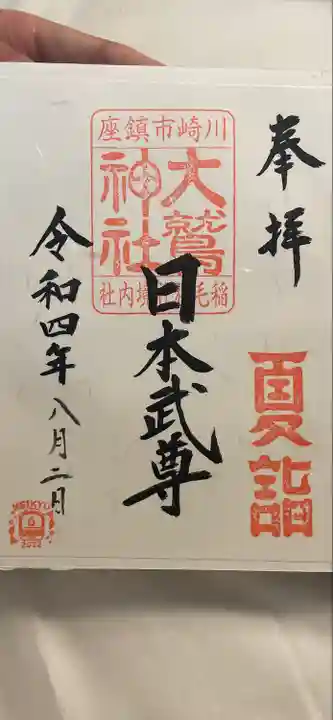 奉拝
夏詣
川崎市鎮座
大鷲
神社
境内社
日本武尊
令和四年八月二日
KEIKYU
2022